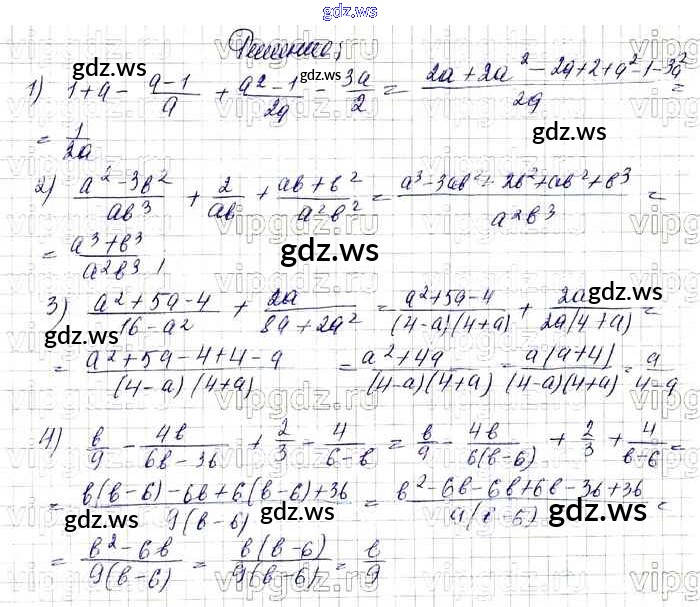 gdz.ws
Решение:
1) 1+a - (a-1)/a + (a²-1)/2a - 3a/2 = (2a+2a²-2a+2+a²-1-3a²)/2a =
= 1/2a
2) (a²-3b²)/ab³ + 2/ab + (ab+b²)/a²b² = (a³-3ab²+2b²+ab²+b³)/a²b³ =
= (a³+b³)/a²b³
3) (a²+5a-4)/(16-a²) + 2a/(8a+2a²) = (a²+5a-4)/((4-a)(4+a)) + 2a/(2a(4+a)) =
= (a²+5a-4+4-a)/((4-a)(4+a)) = (a²+4a)/((4-a)(4+a)) = a(a+4)/((4-a)(4+a)) = a/(4-a)
4) b/9 - 4b/(6b-36) + 2/3 - 4/(6-b) = b/9 - 4b/(6(b-6)) + 2/3 + 4/(b-6) =
= (b(b-6)-6b+6(b-6)+36)/(9(b-6)) = (b²-6b-6b+6b-36+36)/(9(b-6)) =
= (b²-6b)/(9(b-6)) = b(b-6)/(9(b-6)) = b/9